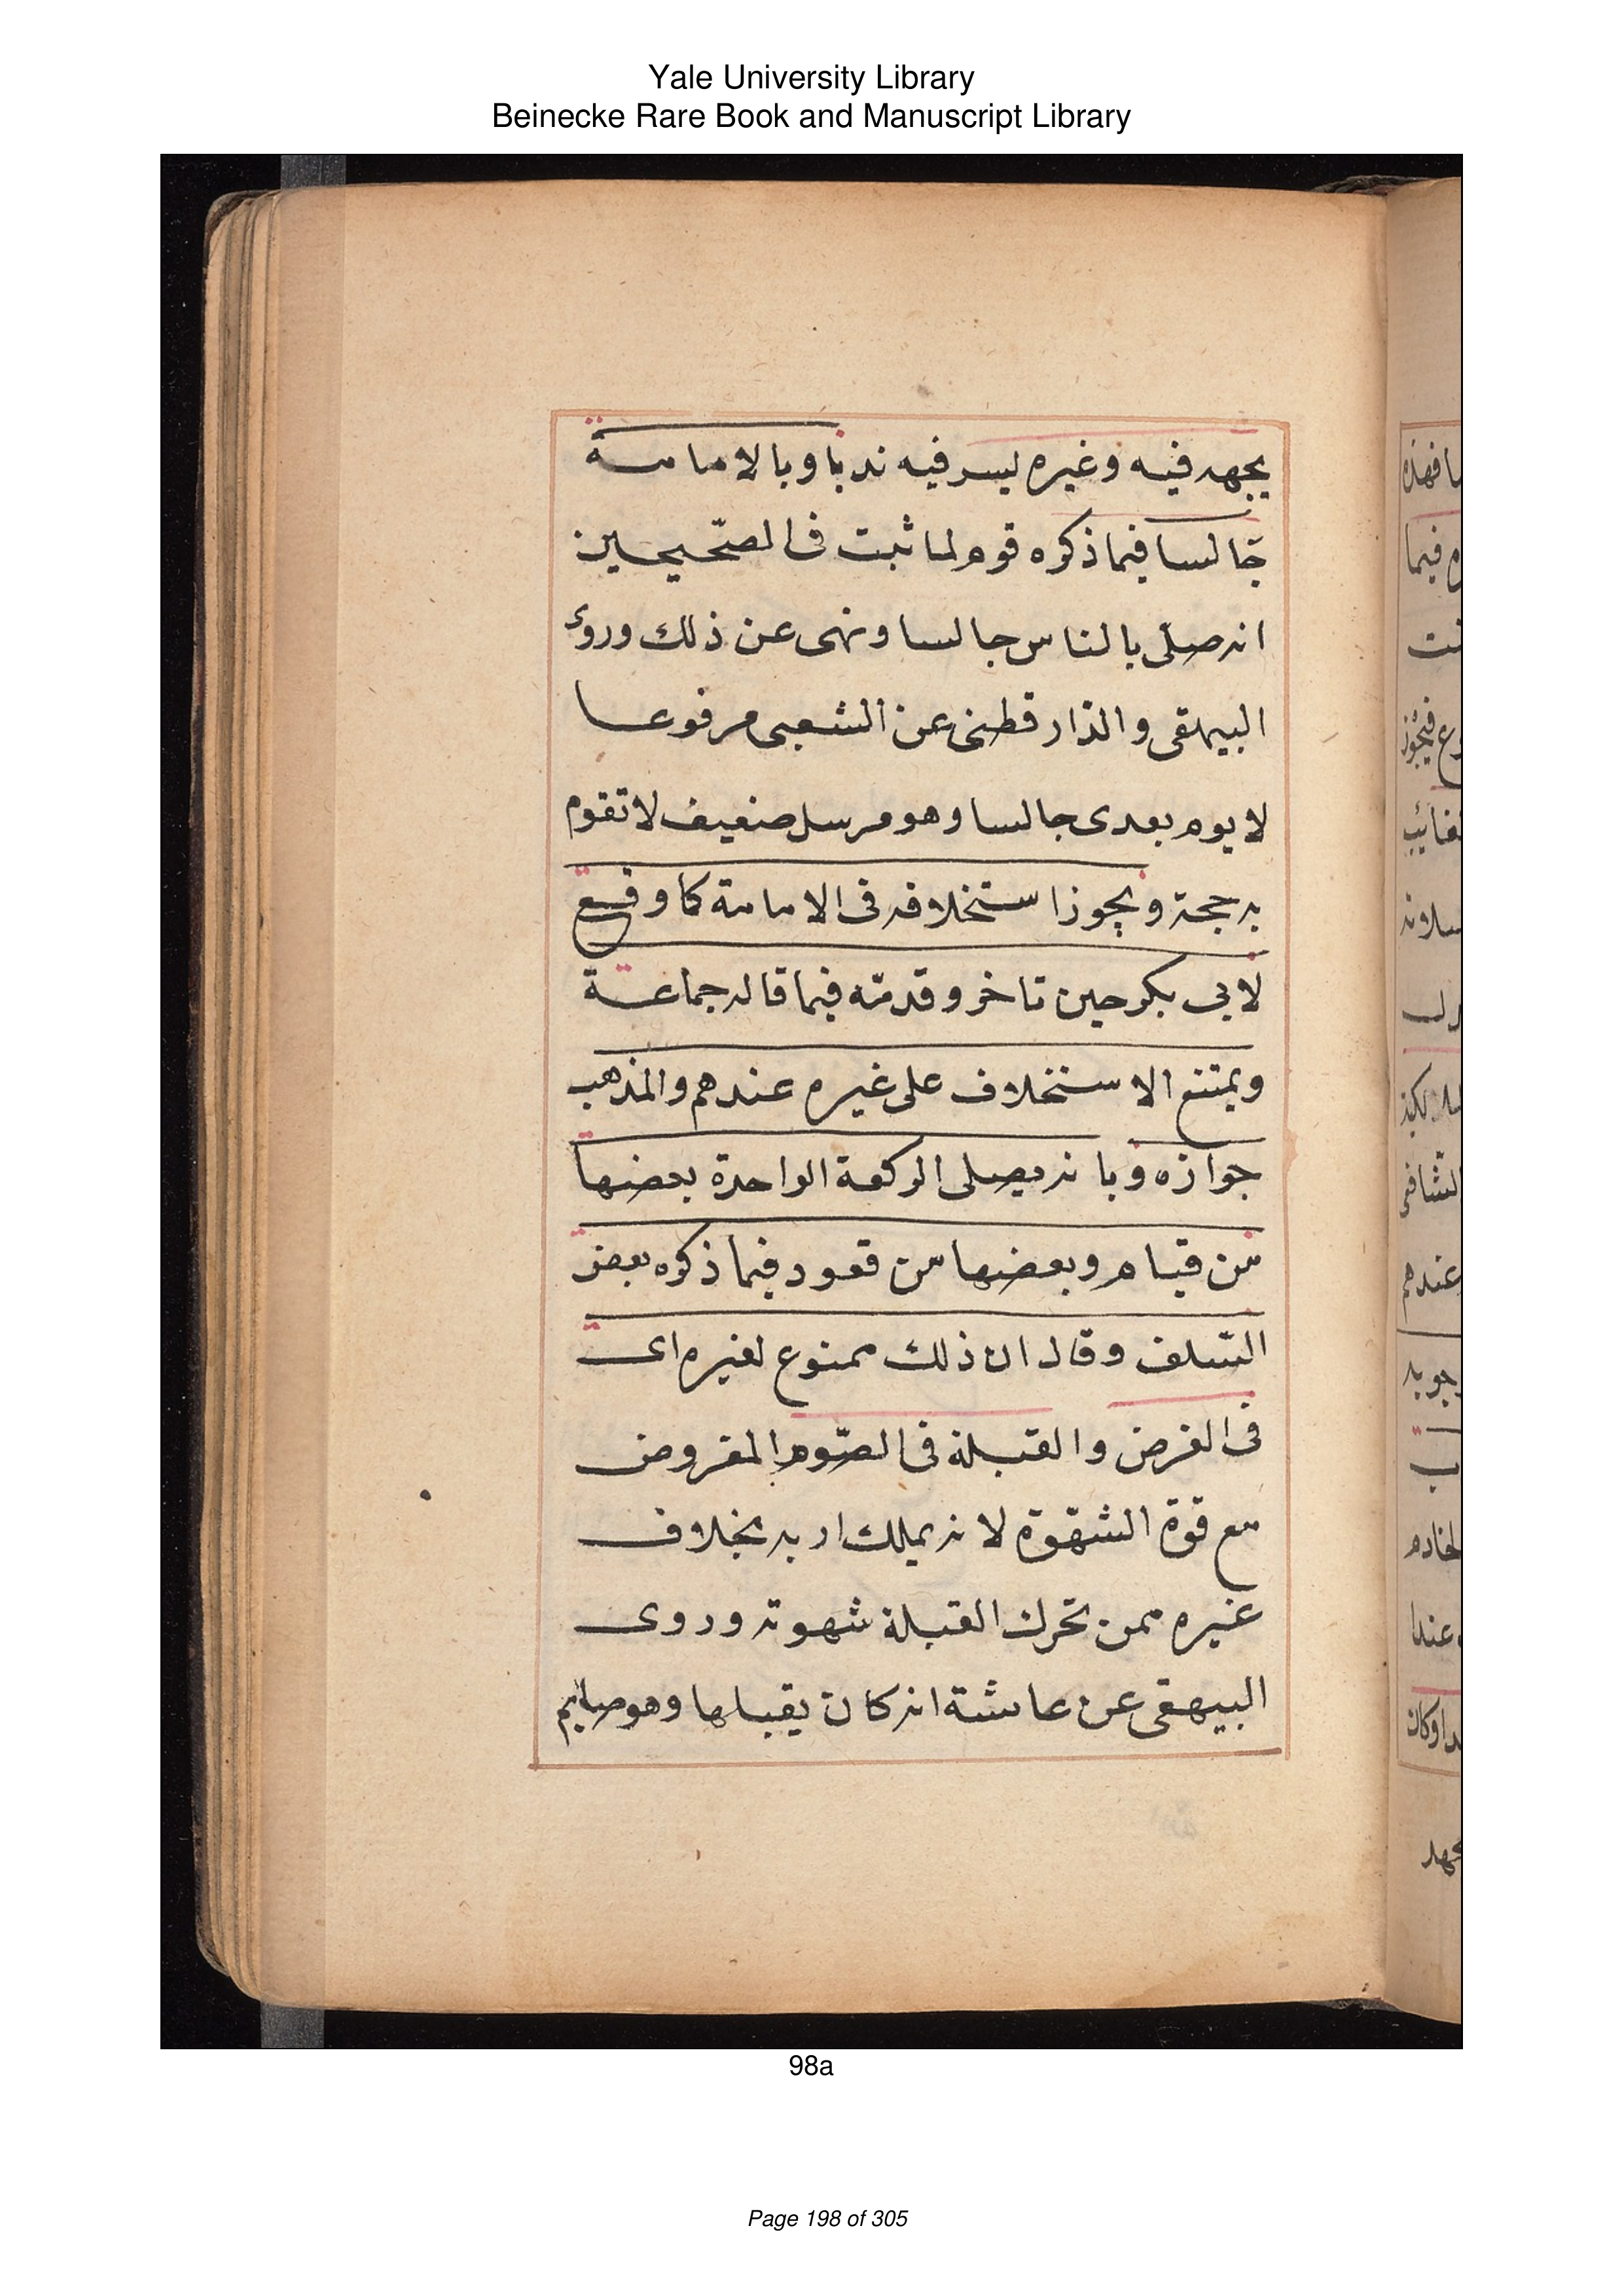 Yale University Library
Beinecke Rare Book and Manuscript Library
يجهد فيه وغيره ليسر فيه ندبا وبالامامة
جالسا فيما ذكره قوم لما ثبت فى الصّحيحين
انه صلّى بالناس جالسا ونهى عن ذلك وروى
البيهقى والدّارقطنى عن الشعبى مرفوعا
لا يوم بعدى جالسا وهو مرسل ضعيف لا تقوم
به حجة ويجوز استخلافه فى الامامة كما وقع
لابى بكر حين تاخر وقدمّه فيما قاله جماعة
ويمتنع الاستخلاف على غيره عندهم والمذهب
جوازه وبانه يصلى الركعة الواحدة بعضها
من قيام وبعضها من قعود فيما ذكره بعض
السّلف وقال ان ذلك ممنوع لغيره اى
فى الفرض والقبلة فى الصّوم المفروض
مع قوة الشهوة لانه يملك اربه بخلاف
غيره ممن تحرك القبلة شهوته وروى
البيهقى عن عائشة انه كان يقبلها وهو صايم
98a
Page 198 of 305